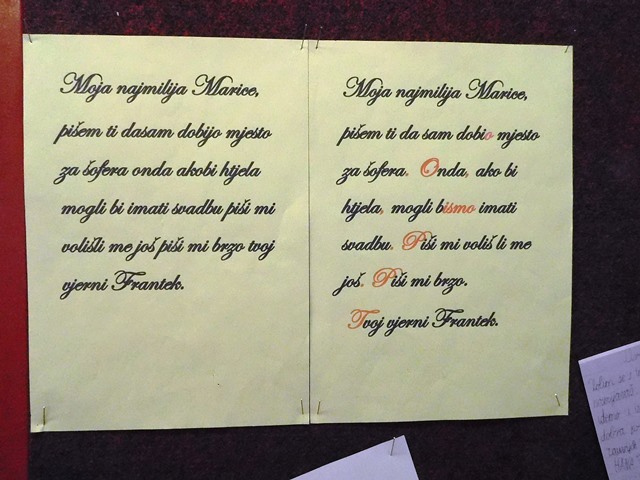 Moja najmilija Marice,
pišem ti dasam dobijo mjesto
za šofera onda akobi htjela
mogli bi imati svadbu piši mi
volišli me još piši mi brzo tvoj
vjerni Frantek.
Moja najmilija Marice,
pišem ti da sam dobio mjesto
za šofera. Onda, ako bi
htjela, mogli bismo imati
svadbu. Piši mi voliš li me
još. Piši mi brzo.
Tvoj vjerni Frantek.